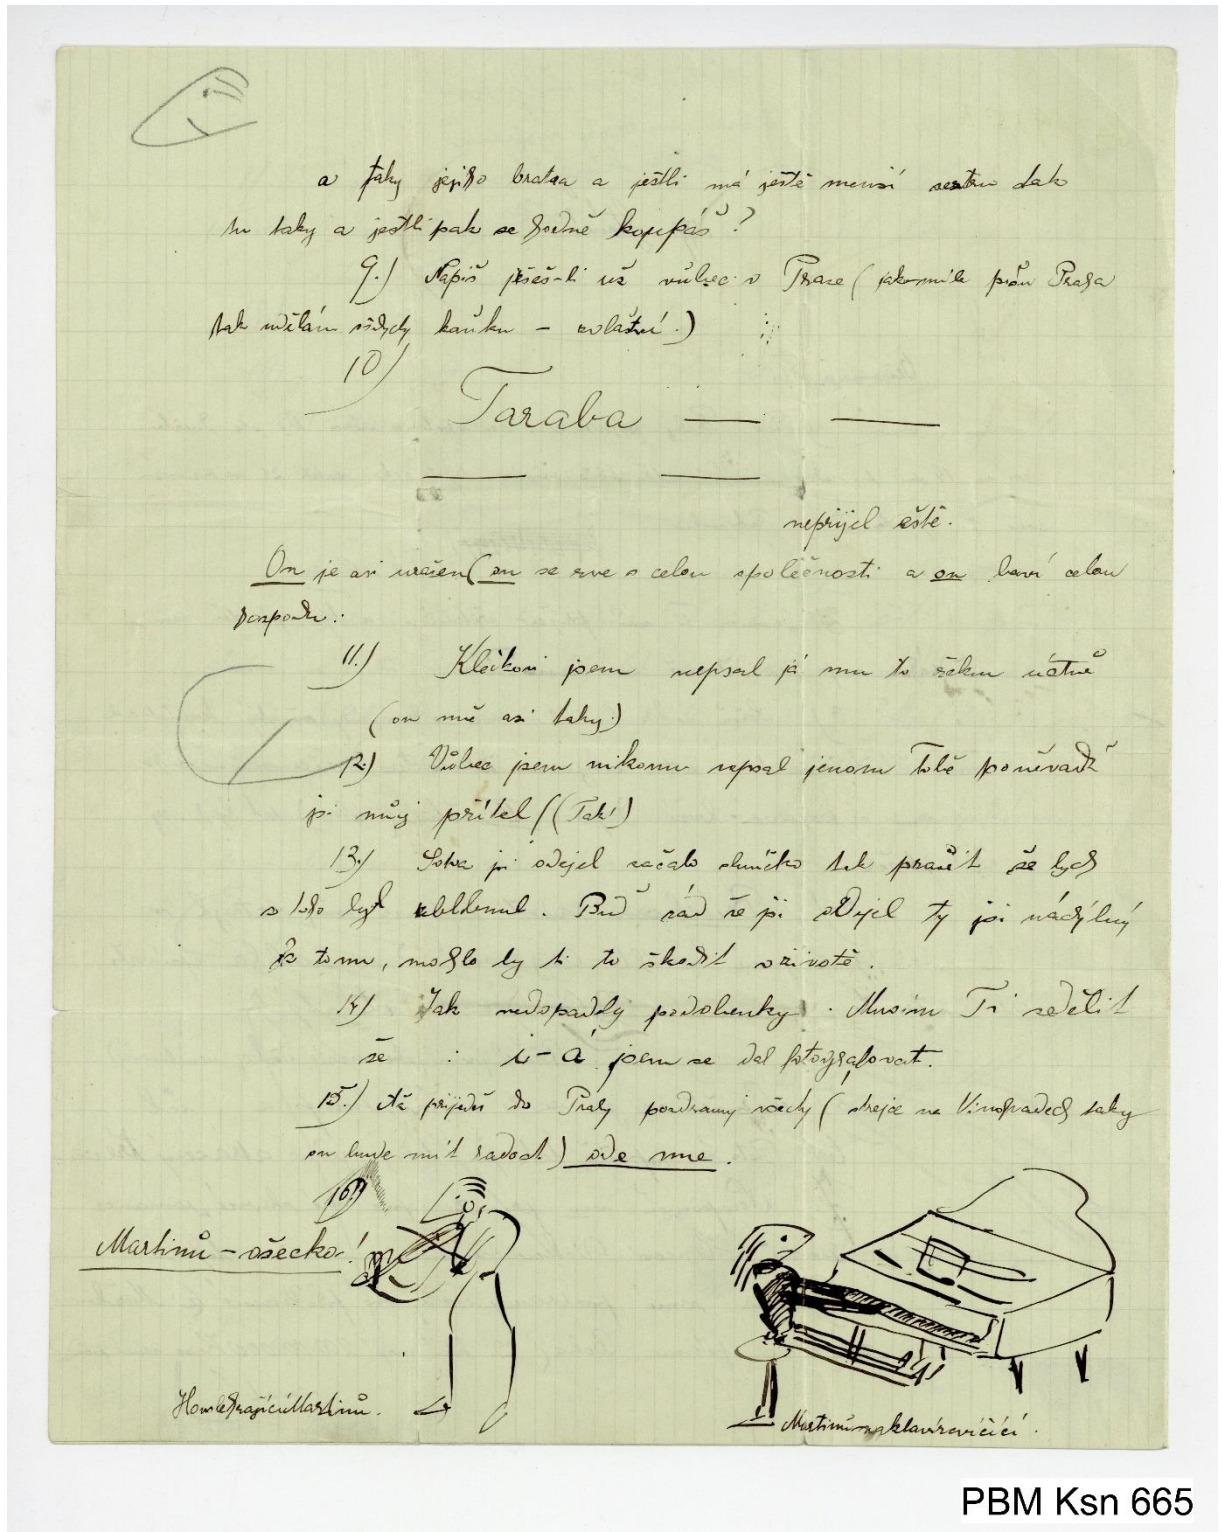 a taky jejího bratra a jestli má ještě menší sestru tak
tu taky a jestli pak se hodně koupáš?
9.) Napiš jseš-li už vůbec v Praze (jakmile píšu Praha
tak udělám vždycky kaňku – zvláštní.)
10)
Taraba — —
— —
nepřijel eště.
On je asi uražen (on se rve s celou společností a on baví celou
hospodu.
11.) Klečkovi jsem nepsal já mu to řeknu ústně
(on mně asi taky.)
12.) Vůbec jsem nikomu nepsal jenom Tobě poněvadž
jsi můj přítel! (Tak!)
13.) Sotva jsi odejel začalo sluníčko tak pražit že bych
z toho byl zblbnul. Buď rád že jsi odejel ty jsi náchylný
k tomu, mohlo by ti to škodit v životě.
14) Jak vedopadly podobenky. Musím Ti sdělit
že : i-á jsem se dal fotografovat.
15.) Až prijedeš do Prahy pozdravuj všecky (strejce na Vinohradech taky
on bude mít radost) ode mne.
16)
Martinů – všecko!
HousleHrajícíMartinů.
Martinůnaklavírcvičící.
PBM Ksn 665